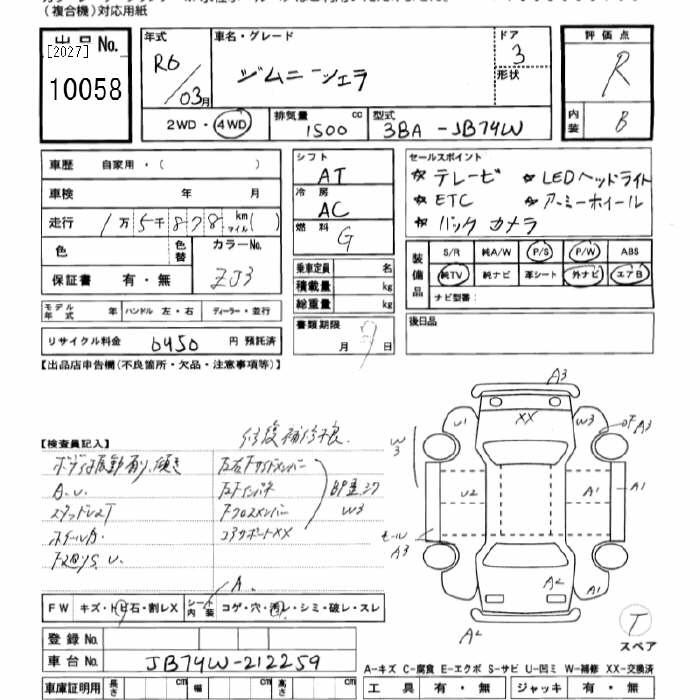 (複合機)対応用紙
出品No.
[2027]
10058
年式
R6/03月
車名・グレード
ジムニーシエラ
ドア
3
形状
評価点
R
内装
B
2WD・4WD
排気量
1500 cc
型式
3BA-JB74W
車歴 自家用・( )
車検 年 月
走行 1万5千878km マイル( )
色
色替
カラーNo.
ZJ3
保証書 有・無
モデル年式 年 ハンドル 左・右 ディーラー・並行
リサイクル料金 6450 円 預託済
シフト
AT
冷房
AC
燃料
G
乗車定員 名
積載量 kg
総重量 kg
書類期限
月 日
セールスポイント
☆ テレービ ☆ LEDヘッドライト
☆ ETC ☆ アーミーホイール
☆ バック カメラ
装備品
S/R 純A/W P/S P/W ABS
純TV 純ナビ 革シート 外ナビ エアB
ナビ型番:
後日品
【出品店申告欄(不良箇所・欠品・注意事項等)】
【検査員記入】
A.U.
コアサポートXX
W3
A.
FW キズ・トビ石・割レX シート内装 コゲ・穴・汚レ・シミ・破レ・スレ
登録No.
車台No. JB74W-212259
車庫証明用 長さ cm 幅 cm 高さ cm
A3
U1
XX
W3
A3
W3
U2
A1
A1
モール
A3
A2
A1
A2
T
スペア
A-キズ C-腐食 E-エクボ S-サビ U-凹ミ W-補修 XX-交換済
工具 有・無 ジャッキ 有・無